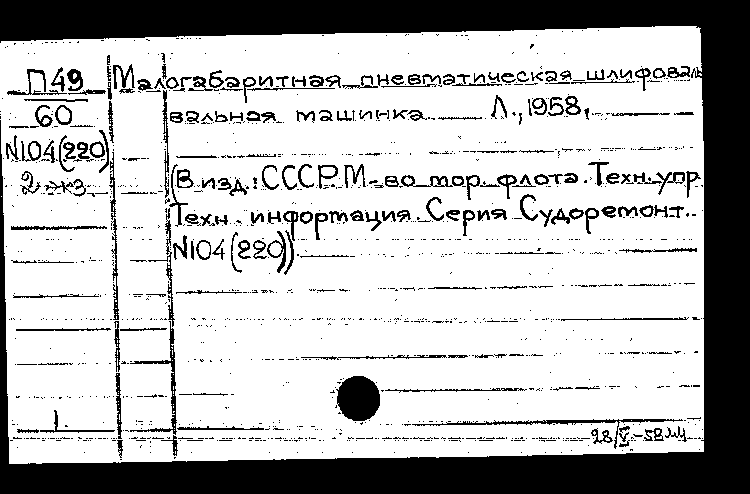 П49
60
N104(220)
2 экз.
Малогабаритная пневматическая шлифоваль
вальная машинка Л., 1958,
(В изд.: СССР. М-во мор. флота. Техн. упр
Техн. информация. Серия Судоремонт.
N104(220))
1
28/V-58